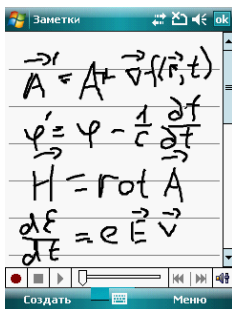 Заметки ok
A⃗' = A⃗ + ∇⃗ f(r⃗, t)
φ' = φ - 1/c ∂f/∂t
H⃗ = rot A⃗
dƐ/dt = e E⃗ v⃗
Создать Меню